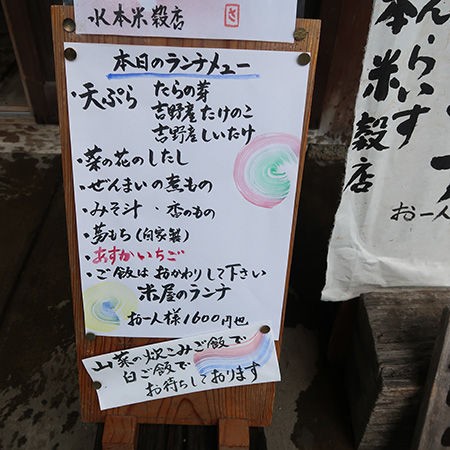 水本米穀店
さ
本日のランチメュー
・天ぷら たらの芽
吉野産たけのこ
吉野産しいたけ
・菜の花のしたし
・ぜんまいの煮もの
・みそ汁 ・香のもの
・蓬もち(自家製)
・あすかいちご
・ご飯はおかわりして下さい
米屋のランチ
お一人様1600円也
山菜の炊こみご飯で
白ご飯で
お待ちしております
らいす
本米穀店
お一人